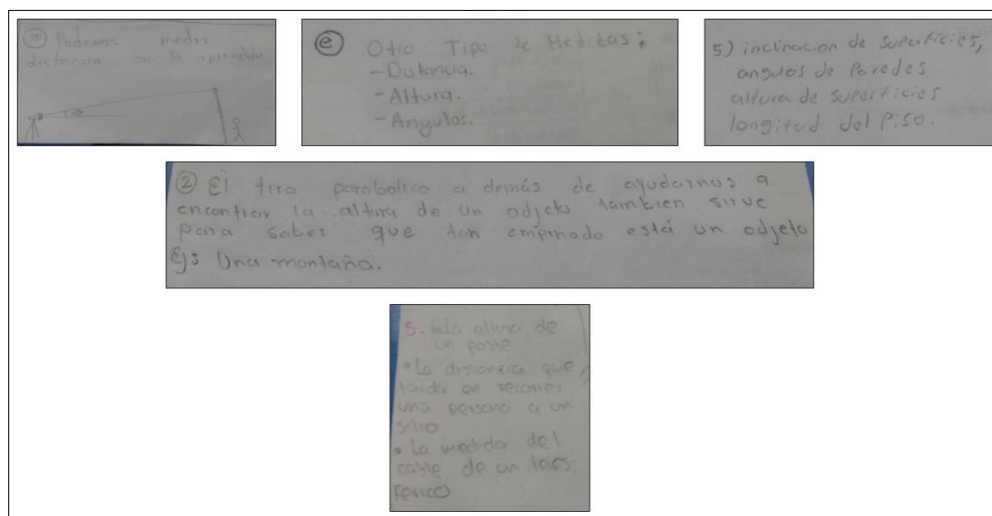 Podemos medir
distancia con lo aprendido
e Otro Tipo de Medidas:
- Distancia.
- Altura.
- Angulos.
5) inclinacion de superficies,
angulos de Paredes
altura de superficies
longitud del Piso.
② El tiro parabolico a demás de ayudarnos a
encontrar la altura de un odjeto tambien sirve
para saber que tan empinado está un odjeto
Ej: Una montaña.
5. altura de
un poste
• La distancia que
tarda en recorrer
una persona a un
sitio
• La medida del
cable de un teles-
ferico